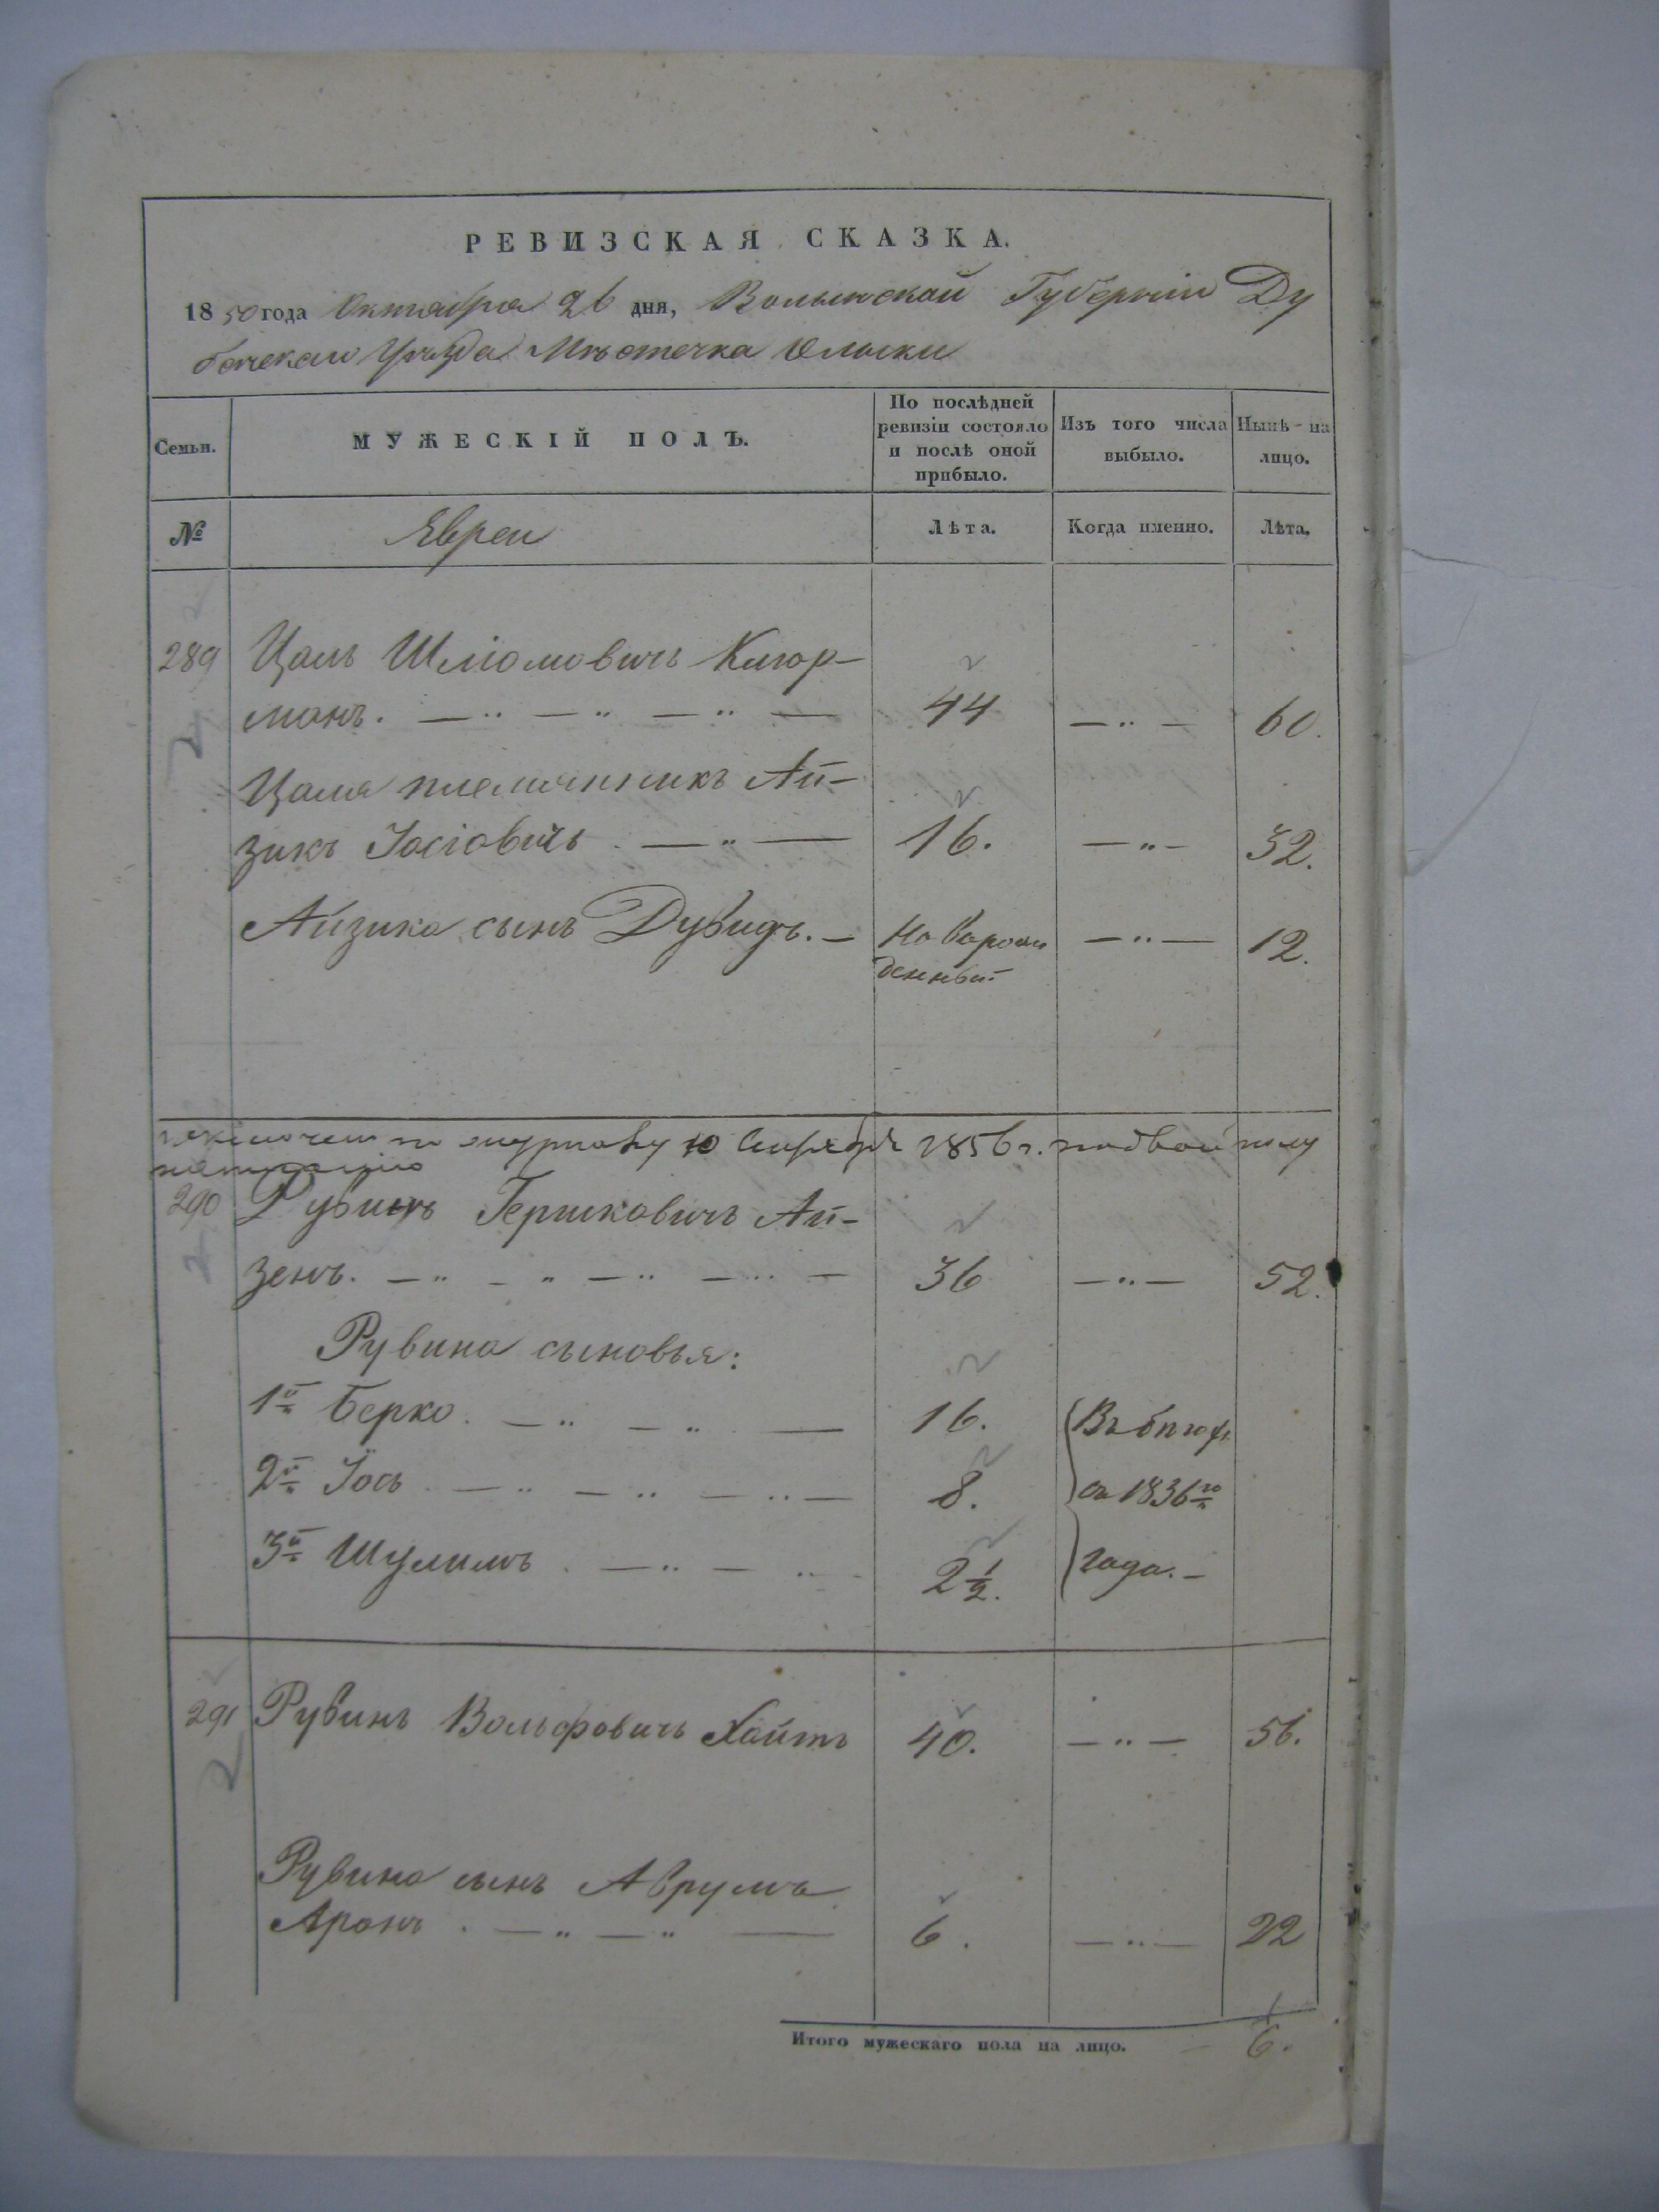 РЕВИЗСКАЯ СКАЗКА.
1850 года Октября 26 дня, Волынской Губерніи Ду
бенскаго Уѣзда Мѣстечка Олыки
Семьи.
МУЖЕСКІЙ ПОЛЪ.
По послѣдней ревизіи состояло и послѣ оной прибыло.
Изъ того числа выбыло.
Нынѣ на лицо.
№
Евреи
Лѣта.
Когда именно.
Лѣта.
289 Цаль Шліомовичъ Клюр-
манъ. 44 60.
Цаля племянникъ Ай-
зикъ Іосіовичъ 16. 32.
Айзика сынъ Дувидъ. Новорож 12.
денный
по журналу 10 1856 г.
290 Рувинъ Гершковичъ Ай-
зенъ. 36 52.
Рувина сыновья:
1й Берко. 16. Въ бѣгахъ
2й Іось 8. съ 1836го
3й Шулимъ 2½. года.
291 Рувинъ Вольфовичъ Хайтъ 40. 56.
Рувина сынъ Аврумъ
Аронъ 6. 22
Итого мужескаго пола на лицо. 6.